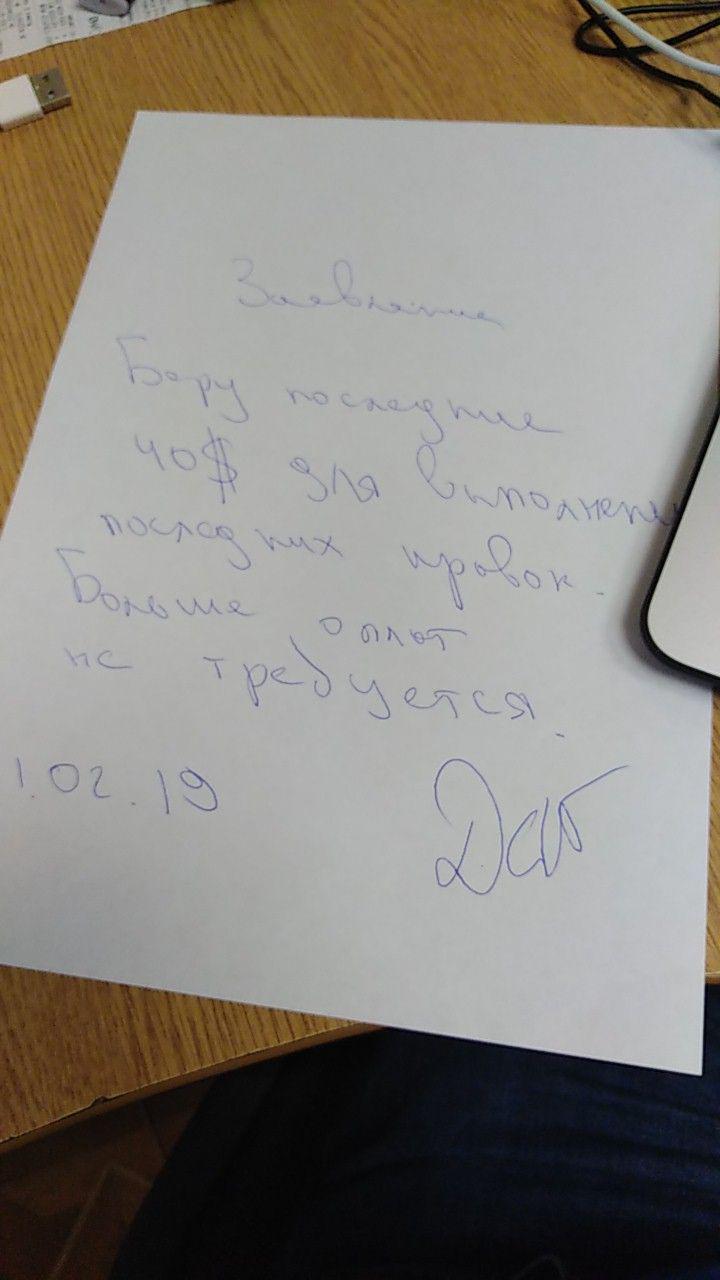 Заявление
Беру последние
40$ для выполнения
последних провок.
Больше оплат
не требуется.
1.02.19